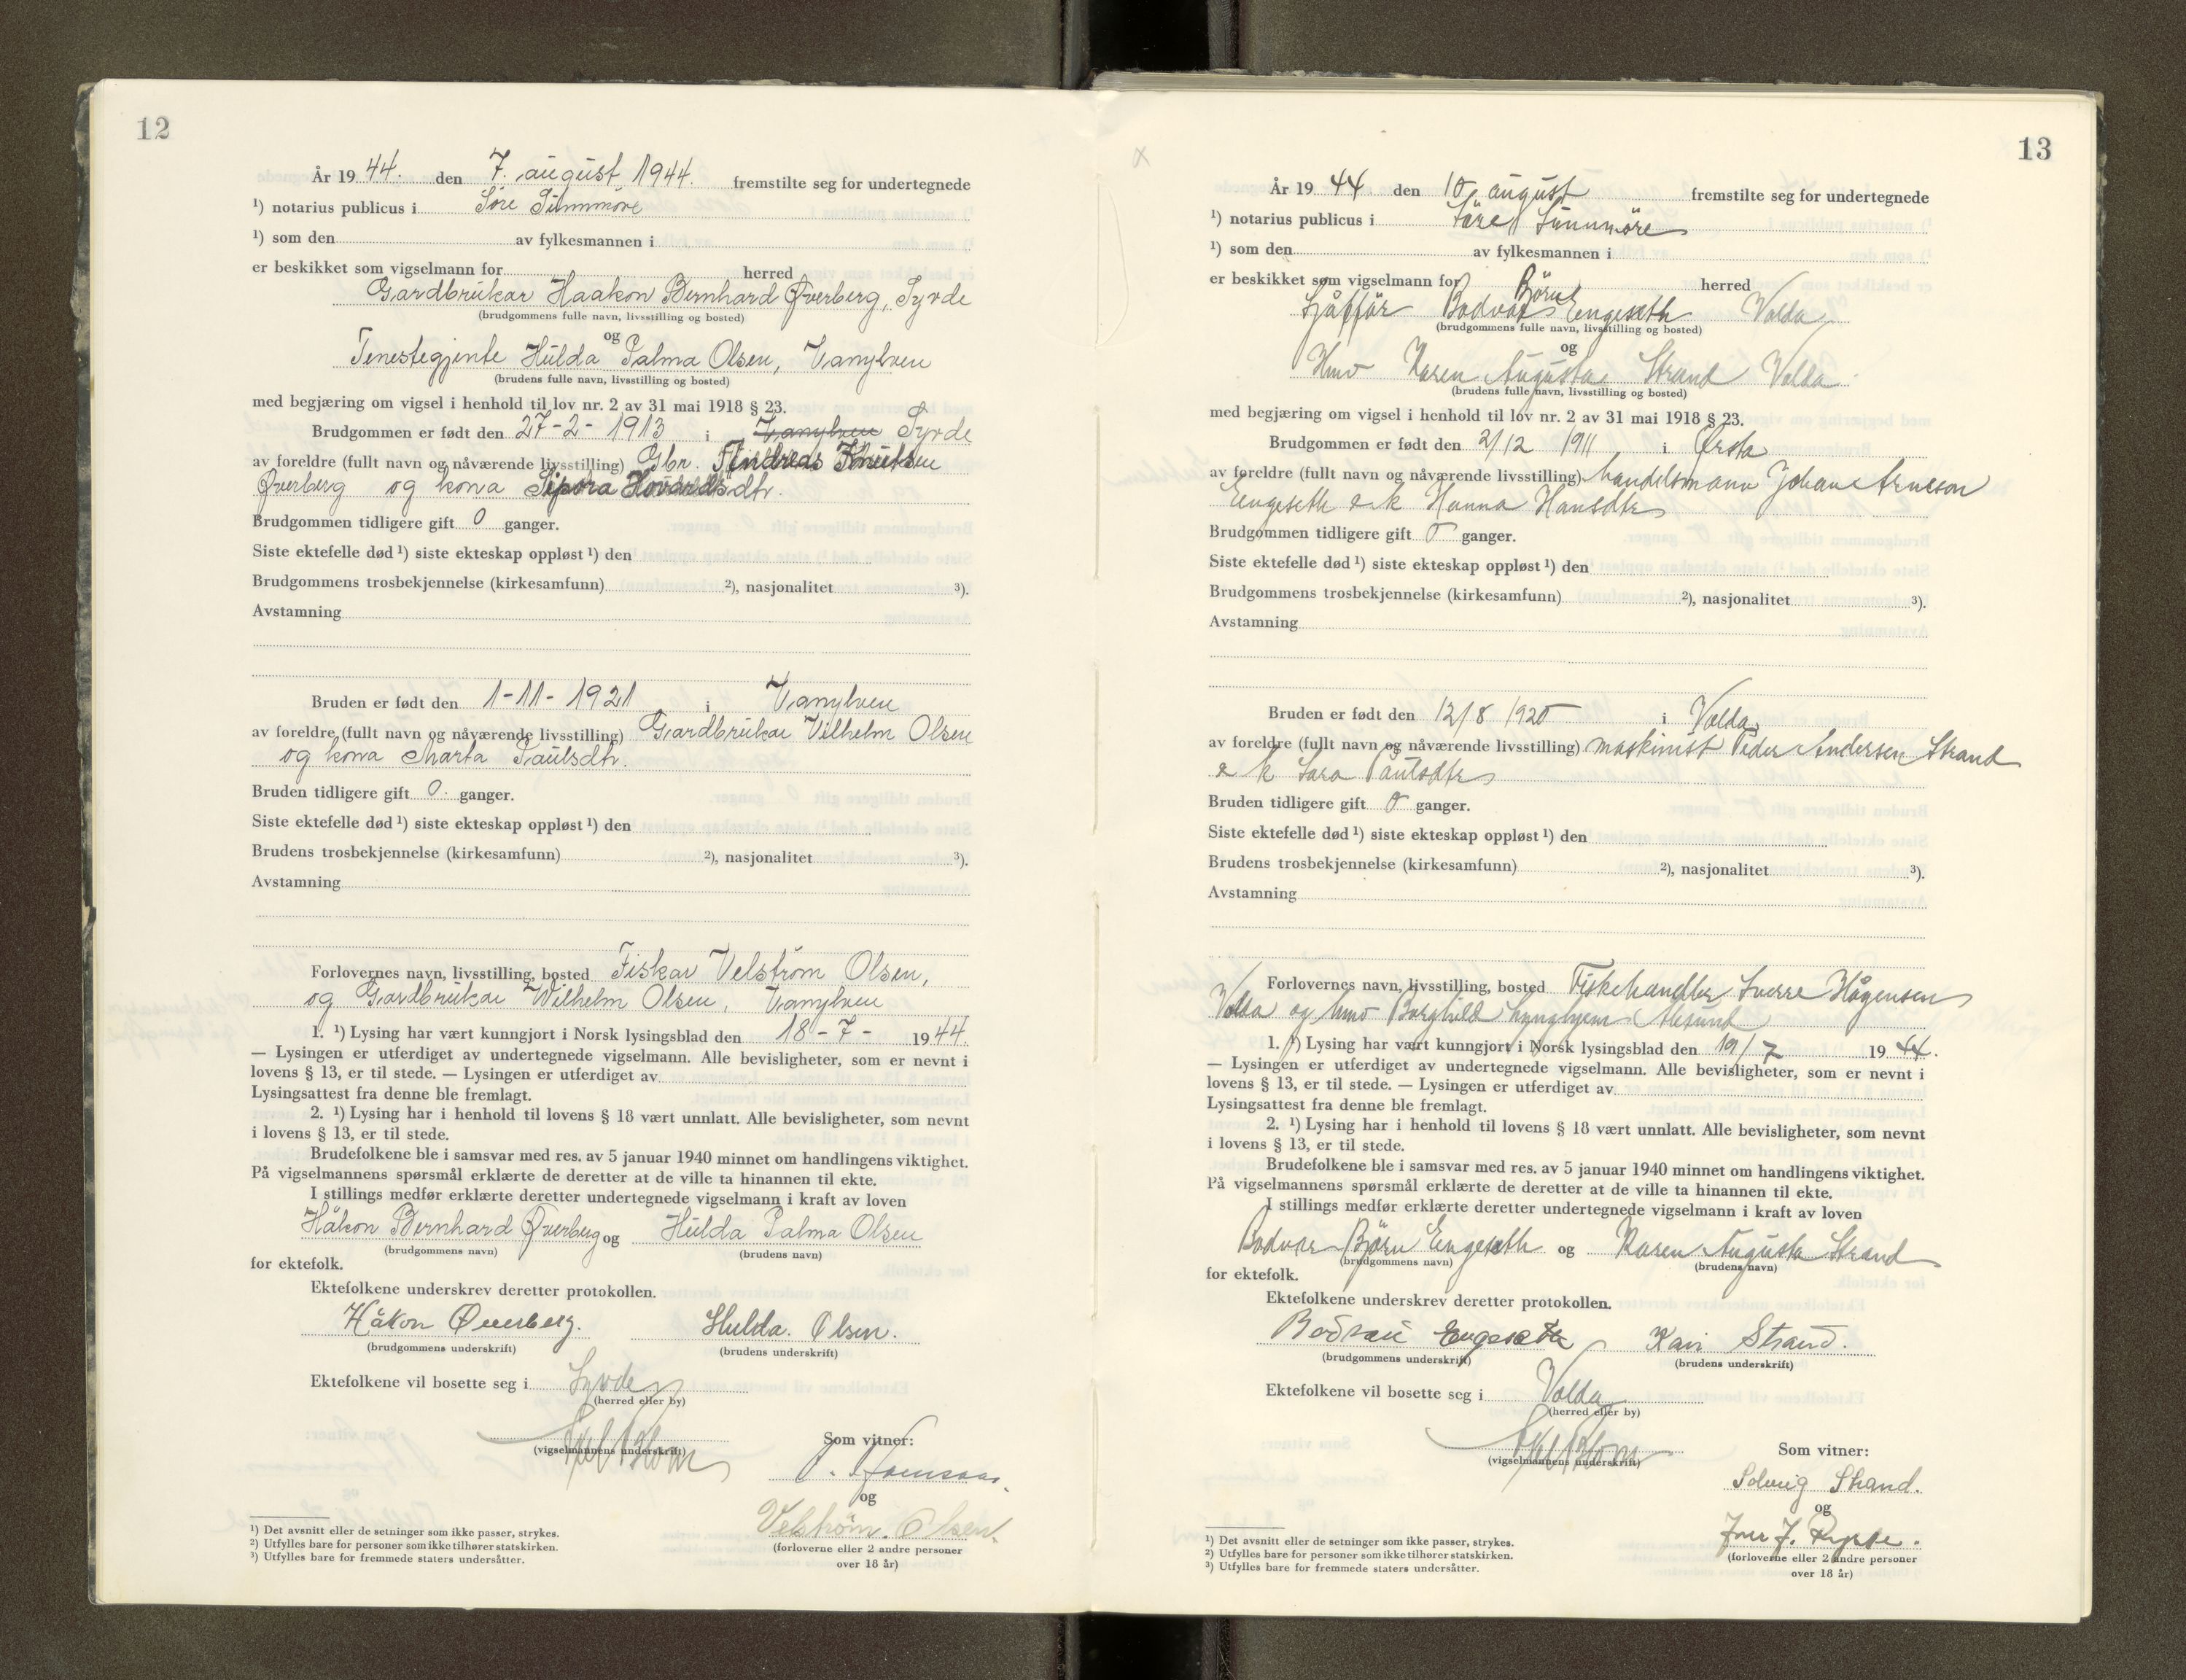 12
År 19 44. den 7. august 1944. fremstilte seg for undertegnede
¹) notarius publicus i Søre Sunnmøre
¹) som den av fylkesmannen i
er beskikket som vigselmann for herred
Gardbrukar Haakon Bernhard Øverberg, Syvde
(brudgommens fulle navn, livsstilling og bosted)
og
Tenestegjente Hulda Palma Olsen, Vanylven
(brudens fulle navn, livsstilling og bosted)
med begjæring om vigsel i henhold til lov nr. 2 av 31 mai 1918 § 23.
Brudgommen er født den 27-2-1913 i Vanylven Syvde
av foreldre (fullt navn og nåværende livsstilling) Gbr. Andreas Knutsen
Øverberg og kona Sipora Hovardsdtr.
Brudgommen tidligere gift 0 ganger.
Siste ektefelle død ¹) siste ekteskap oppløst ¹) den
Brudgommens trosbekjennelse (kirkesamfunn) ²), nasjonalitet ³).
Avstamning
Bruden er født den 1-11-1921 i Vanylven
av foreldre (fullt navn og nåværende livsstilling) Gardbrukar Vilhelm Olsen
og kona Marta Paulsdtr.
Bruden tidligere gift 0. ganger.
Siste ektefelle død ¹) siste ekteskap oppløst ¹) den
Brudens trosbekjennelse (kirkesamfunn) ²), nasjonalitet ³).
Avstamning
Forlovernes navn, livsstilling, bosted Fiskar Velstrøm Olsen,
og Gardbrukar Wilhelm Olsen, Vanylven
1. ¹) Lysing har vært kunngjort i Norsk lysingsblad den 18-7- 19 44.
— Lysingen er utferdiget av undertegnede vigselmann. Alle bevisligheter, som er nevnt i
lovens § 13, er til stede. — Lysingen er utferdiget av
Lysingsattest fra denne ble fremlagt.
2. ¹) Lysing har i henhold til lovens § 18 vært unnlatt. Alle bevisligheter, som nevnt
i lovens § 13, er til stede.
Brudefolkene ble i samsvar med res. av 5 januar 1940 minnet om handlingens viktighet.
På vigselmannens spørsmål erklærte de deretter at de ville ta hinannen til ekte.
I stillings medfør erklærte deretter undertegnede vigselmann i kraft av loven
Håkon Bernhard Øverberg og Hulda Palma Olsen
(brudgommens navn) (brudens navn)
for ektefolk.
Ektefolkene underskrev deretter protokollen.
Håkon Øverberg. Hulda. Olsen.
(brudgommens underskrift) (brudens underskrift)
Ektefolkene vil bosette seg i Syvde
(herred eller by)
Som vitner:
(vigselmannens underskrift)
og
Velstrøm. Olsen.
(forloverne eller 2 andre personer
over 18 år)
¹) Det avsnitt eller de setninger som ikke passer, strykes.
²) Utfylles bare for personer som ikke tilhører statskirken.
³) Utfylles bare for fremmede staters undersåtter.
13
År 19 44 den 10 august fremstilte seg for undertegnede
¹) notarius publicus i Søre Sunnmøre
¹) som den av fylkesmannen i
er beskikket som vigselmann for herred
Björn
Sjåffør Bodvar Engeseth Volda
(brudgommens fulle navn, livsstilling og bosted)
og
Hmv Karen Augusta Strand Volda
(brudens fulle navn, livsstilling og bosted)
med begjæring om vigsel i henhold til lov nr. 2 av 31 mai 1918 § 23.
Brudgommen er født den 2/12 1911 i Ørsta
av foreldre (fullt navn og nåværende livsstilling) handelsmann Johan Arneson
Engeseth & k Hanna Hansdtr
Brudgommen tidligere gift 0 ganger.
Siste ektefelle død ¹) siste ekteskap oppløst ¹) den
Brudgommens trosbekjennelse (kirkesamfunn) ²), nasjonalitet ³).
Avstamning
Bruden er født den 12/8 1920 i Volda
av foreldre (fullt navn og nåværende livsstilling) maskinist Peder Andersen Strand
& k Sara Paulsdtr
Bruden tidligere gift 0 ganger.
Siste ektefelle død ¹) siste ekteskap oppløst ¹) den
Brudens trosbekjennelse (kirkesamfunn) ²), nasjonalitet ³).
Avstamning
Forlovernes navn, livsstilling, bosted Fiskehandler Sverre Hågensen
Volda og hmv Borghild Lynghjem Ålesund
1. ¹) Lysing har vært kunngjort i Norsk lysingsblad den 19/7 19 44.
— Lysingen er utferdiget av undertegnede vigselmann. Alle bevisligheter, som er nevnt i
lovens § 13, er til stede. — Lysingen er utferdiget av
Lysingsattest fra denne ble fremlagt.
2. ¹) Lysing har i henhold til lovens § 18 vært unnlatt. Alle bevisligheter, som nevnt
i lovens § 13, er til stede.
Brudefolkene ble i samsvar med res. av 5 januar 1940 minnet om handlingens viktighet.
På vigselmannens spørsmål erklærte de deretter at de ville ta hinannen til ekte.
I stillings medfør erklærte deretter undertegnede vigselmann i kraft av loven
Bodvar Björn Engeseth og Karen Augusta Strand
(brudgommens navn) (brudens navn)
for ektefolk.
Ektefolkene underskrev deretter protokollen.
Bodvar Engeseth Kari Strand.
(brudgommens underskrift) (brudens underskrift)
Ektefolkene vil bosette seg i Volda
(herred eller by)
Som vitner:
(vigselmannens underskrift)
Solveig Strand.
og
(forloverne eller 2 andre personer
over 18 år)
¹) Det avsnitt eller de setninger som ikke passer, strykes.
²) Utfylles bare for personer som ikke tilhører statskirken.
³) Utfylles bare for fremmede staters undersåtter.